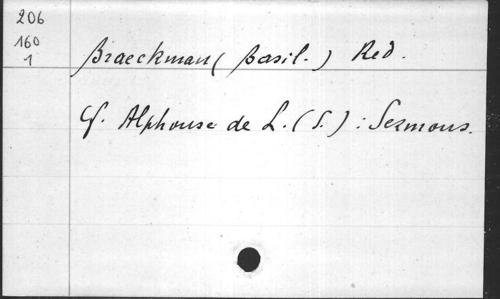 206
160
1
Braeckman (Basil.) Red.
Cf. Alphonse de L. (S.) : Sermons.